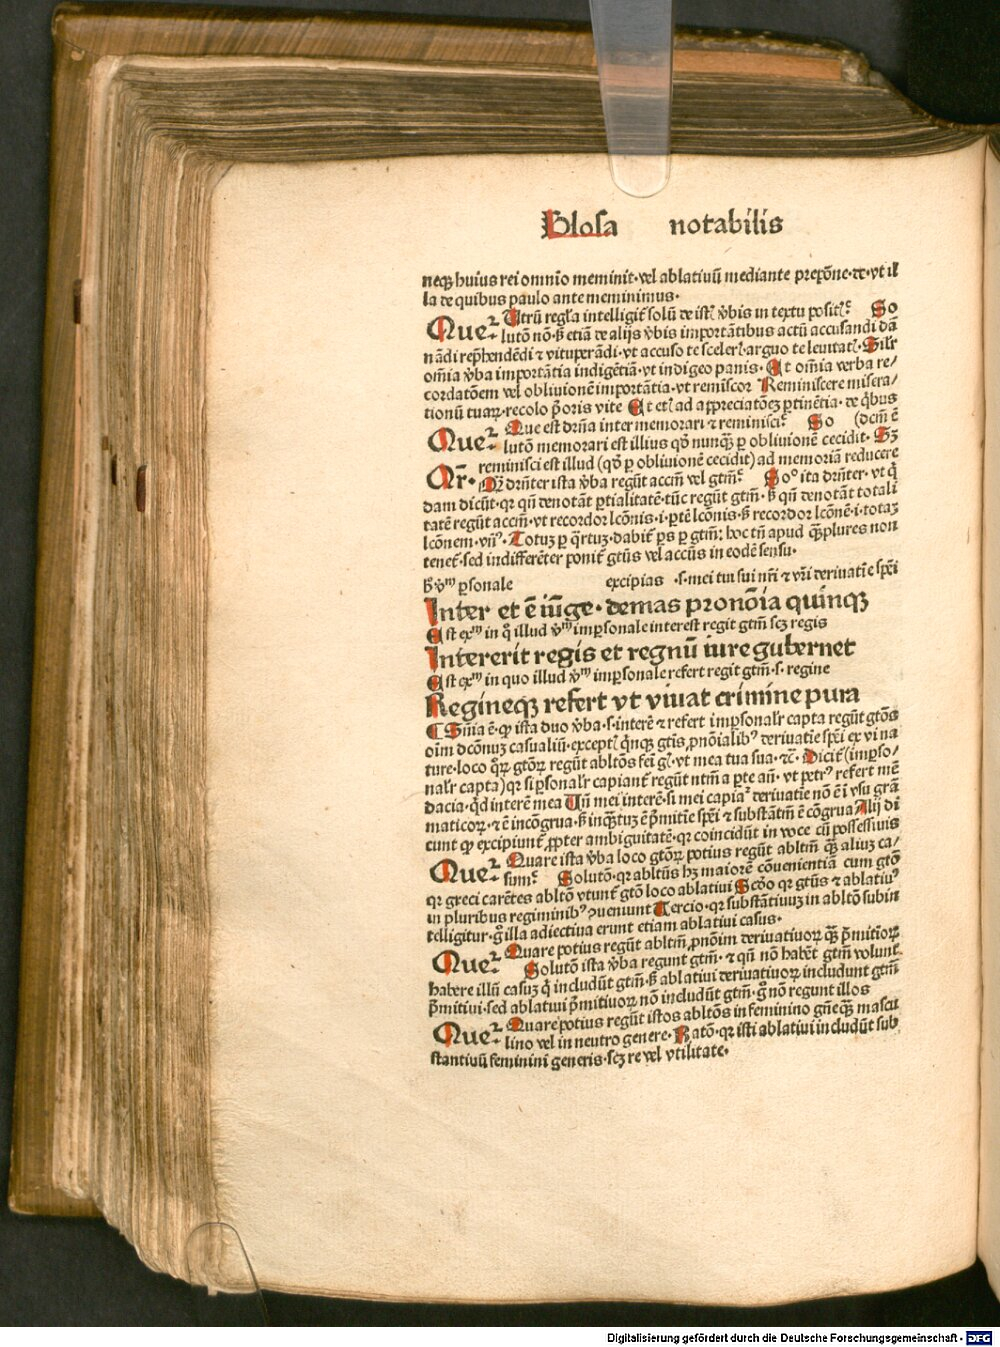 Glosa notabilis
neqꝫ huius rei omnīo meminit·vel ablatiuū mediante prepōne·ꝛc·vt il
la de quibus paulo ante meminimus·
Querꝫ Utrū regl̓a intelligit̄ solū de ist̓ v̓bis in textu posit̓ꝫ So
lutō nō·ß etiā de alijs v̓bis importātibus actū accusandi dā
nādi rep̄hendēdi ⁊ vituperādi·vt accuso te sceler̓·arguo te leuitat̓·Silr
om̄ia v̓ba importātia indigētiā·vt indigeo panis·Et om̄ia verba re/
cordatōem vel obliuionē importātia·vt remīscor Reminiscere misera/
tionū tuaꝝ·recolo p̄oris vite Et et̓ ad appreciatōeꝫ ꝑtinētia·de q̓bus
Querꝫ Que est dr̄na inter memorari ⁊ reminisciꝫ So (dcm̄ ē
lutō memorari est illius qd̓ nunqꝫ ꝑ obliuionē cecidit·Sꝫ
reminisci est illud (qd̓ ꝑ obliuionē cecidit) ad memoriā reducere
Ar̄· Qꝫ dr̄nter ista v̓ba regūt accm̄ vel gtm̄ꝫ So° ita dr̄nter·vt q̄
dam dicūt·qꝛ qn̄ denotāt ꝑtialitatē·tūc regūt gtm̄·ß qn̄ denotāt totali
tatē regūt accm̄·vt recordor lcōnis·i·ꝑtē lcōnis·ß recordor lcōnē·i·totaꝫ
lcōnem·vn̄ꝰ·Totuꝫ ꝑ q̓rtuꝫ·dabit̄ ꝑs ꝑ gtm̄: hoc tn̄ apud qꝫplures non
tenet̄·sed indifferēter ponit̄ gtūs vel accūs in eodē sensu·
ß v̓ᵐ ꝑsonale excipias ·s·mei tui sui nr̄i ⁊ vr̄i deriuatīe spēi
Inter et ē iūge·demas pronōia quinqꝫ
Est exᵐ in q̊ illud v̓ᵐ imꝑsonale interest regit gtm̄ scꝫ regis
Intererit regis et regnū iure gubernet
Est exᵐ in quo illud v̓ᵐ imꝑsonale refert regit gtm̄·s·regine
Regineqꝫ refert vt viuat crimine pura
¶ Sn̄ia ē·ꝙ ista duo v̓ba·s·interē ⁊ refert imꝑsonalr̓ capta regūt gtōs
oīm dcōnuꝫ casualiū·except̓ q̓nqꝫ gtīs ꝓnōialibꝰ deriuatīe spēi ex vi na
ture·loco q̓ꝝ gtōꝝ regūt abltōs fei gl̓·vt mea tua sua·⁊c̄·Dicit̄ (imꝑso/
nalr̓ capta) qꝛ si ꝑsonalr̓ capiant̄ regūt ntm̄ a ꝑte an̄·vt petrꝰ refert mē
dacia·qd̓ interē mea Un̄ mei interē·si mei capiaᷣ deriuatīe nō ē ī vsu grā
maticoꝝ·⁊ ē incōgrua·ß inqꝫtuꝫ ē p̄mitīe spēi ⁊ substātm̄ ē cōgrua Alij di
cunt ꝙ excipiunt̄ ꝓpter ambiguitatē·qꝛ coincidūt in voce cū possessiuis
Querꝫ Quare ista v̓ba loco gtōꝝ potius regūt abltm̄ qꝫ aliuꝫ ca/
sumꝫ Solutō·qꝛ abltūs hꝫ maiorē cōuenientiā cum gtō
qꝛ greci carētes abltō vtunt̄ gtō loco ablatiui Scd̓o qꝛ gtūs ⁊ ablatiuꝰ
in pluribus regiminibꝰ ꝯueniunt Tercio·qꝛ substātiuuꝫ in abltō subin
telligitur·g̊ illa adiectiua erunt etiam ablatiui casus·
Querꝫ Quare potius regūt abltm̄ ꝓnōim deriuatiuoꝝ qꝫ p̄mitiōꝝ
Solutō ista v̓ba regunt gtm̄·⁊ qn̄ nō habēt gtm̄ volunt
habere illū casuꝫ q̄ includūt gtm̄·ß ablatiui deriuatiuoꝝ includunt gtm̄
p̄mitiui·sed ablatiui p̄mitiuoꝝ nō includūt gtm̄·g̊ nō regunt illos
Querꝫ Quare potius regūt istos abltōs in feminino gn̄eqꝫ mascu
lino vel in neutro genere·Ratō·qꝛ isti ablatiui includūt sub
stantiuū feminini generis·scꝫ re vel vtilitate·
Digitalisierung gefördert durch die Deutsche Forschungsgemeinschaft - DFG